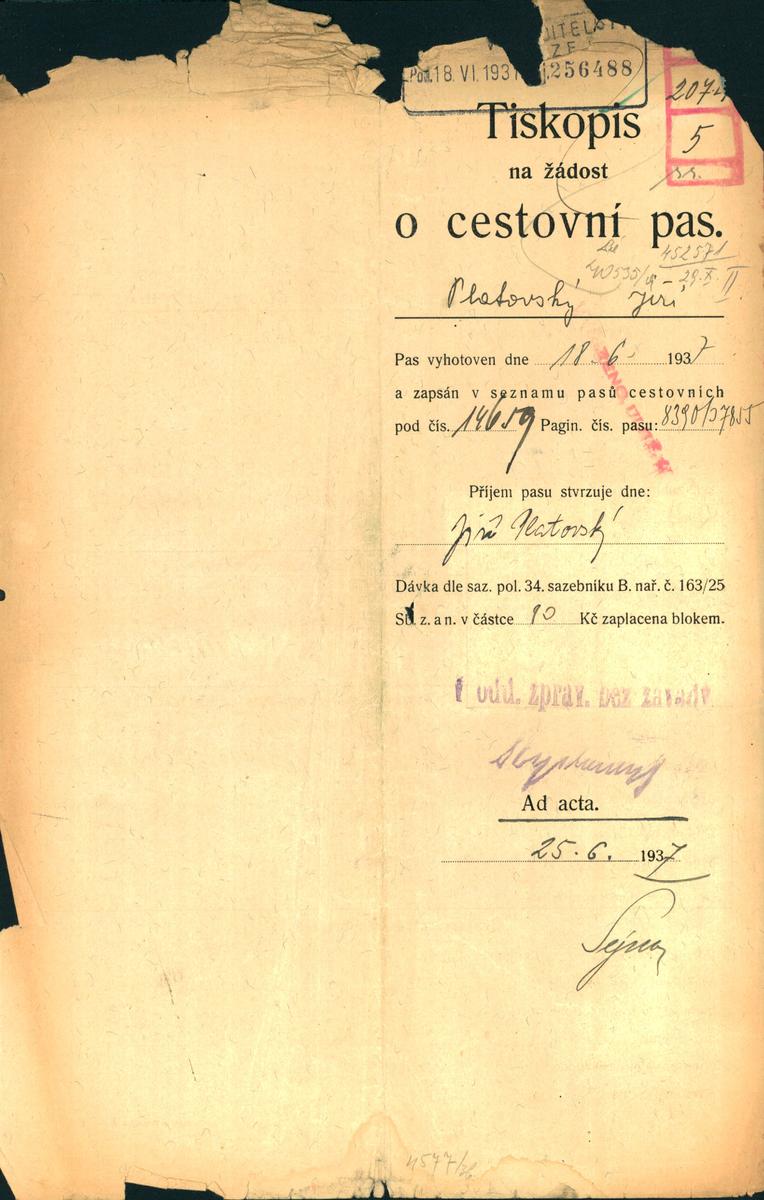 ZE
Pod. 18. VI. 193 256488
207
5
Tiskopis
na žádost
o cestovní pas.
452571
29. X. II
Platovský Jiří
Pas vyhotoven dne 18. 6. 1937
a zapsán v seznamu pasů cestovních
pod čís. 14659 Pagin. čís. pasu: 8390/37855
Příjem pasu stvrzuje dne:
Jiří Platovský
Dávka dle saz. pol. 34. sazebníku B. nař. č. 163/25
Sb. z. a n. v částce 10 Kč zaplacena blokem.
odd. zprav. bez závady
Ad acta.
25. 6. 1937
4577/36